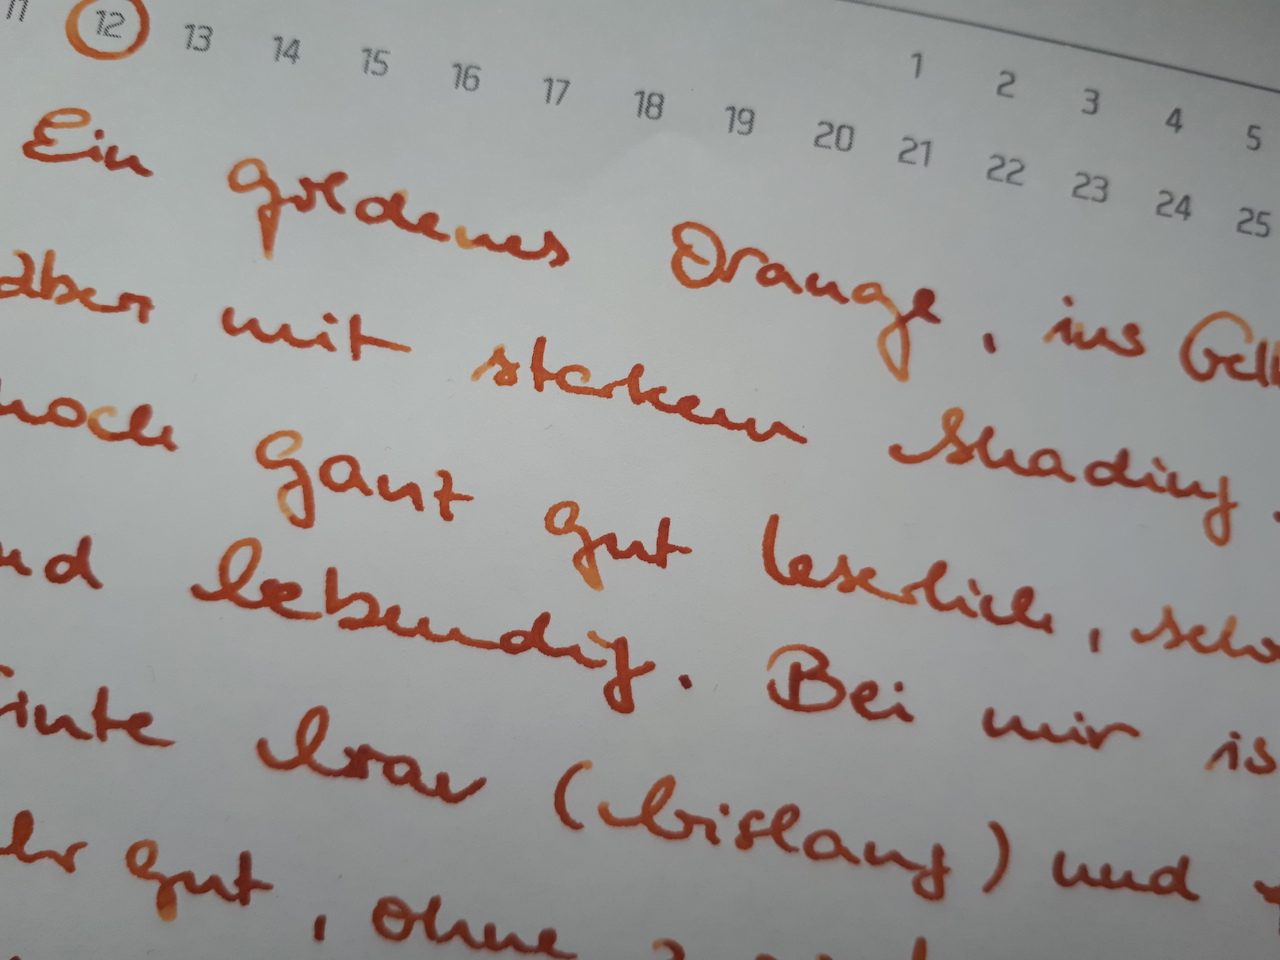 11 12 13 14 15 16 17 18 19 20 21 22 23 24 25
1 2 3 4 5
Ein goldenes Orange, ins Gelb
aber mit starkem Shading.
noch ganz gut leserlich, schö
nd lebendig. Bei mir is
Tinte brav (bislang) und
ehr gut, ohne